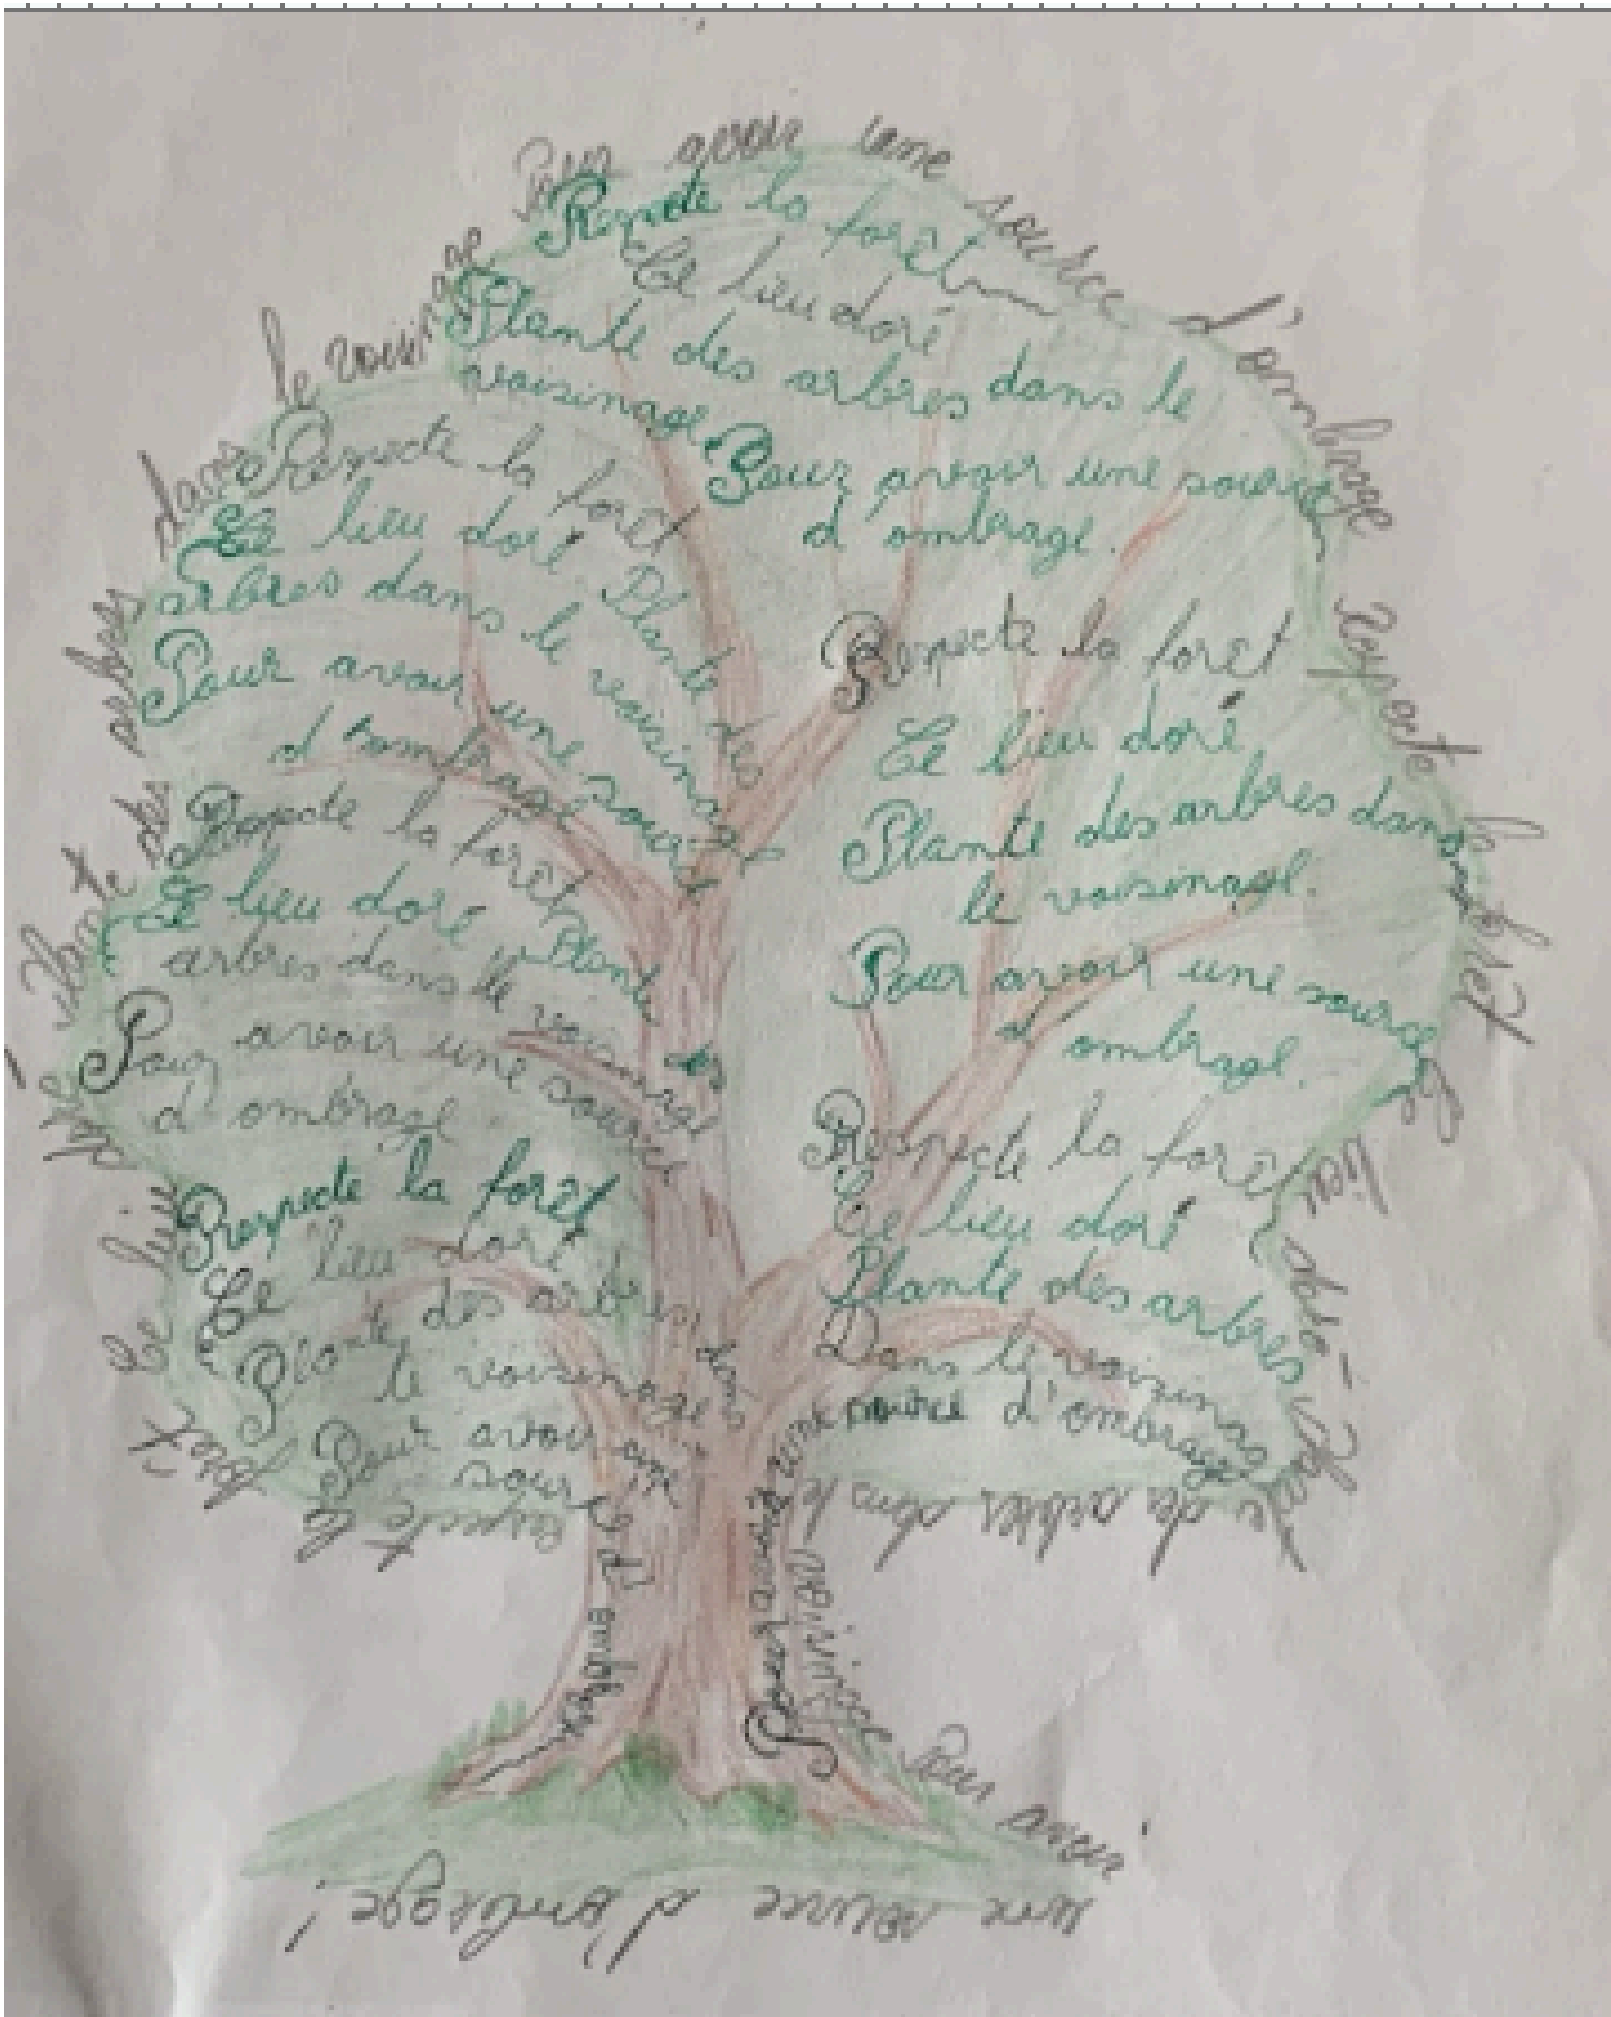 Pour avoir une source d'ombrage
Respecte la forêt
Ce lieu doré
Plante des arbres dans le
voisinage
Pour avoir une source
d'ombrage.
Respecte la forêt
Ce lieu doré. Plante des
arbres dans le voisinage
Pour avoir une source
d'ombrage
Respecte la forêt
Ce lieu doré Plante des
arbres dans le voisinage
Pour avoir une source
d'ombrage.
Respecte la forêt
Ce lieu doré
Plante des arbres dans
le voisinage
Pour avoir une
source d'ombrage
Respecte la forêt
Ce lieu doré
Plante des arbres dans
le voisinage.
Pour avoir une source
d'ombrage.
Respecte la forêt
Ce lieu doré
Plante des arbres
Dans le voisinage
Pour avoir une source d'ombrage
Respecte la forêt
Ce lieu doré
Plante des arbres dans le voisinage
Pour avoir
une source d'ombrage!
Respecte la forêt
Ce lieu doré
Plante des arbres dans le voisinage